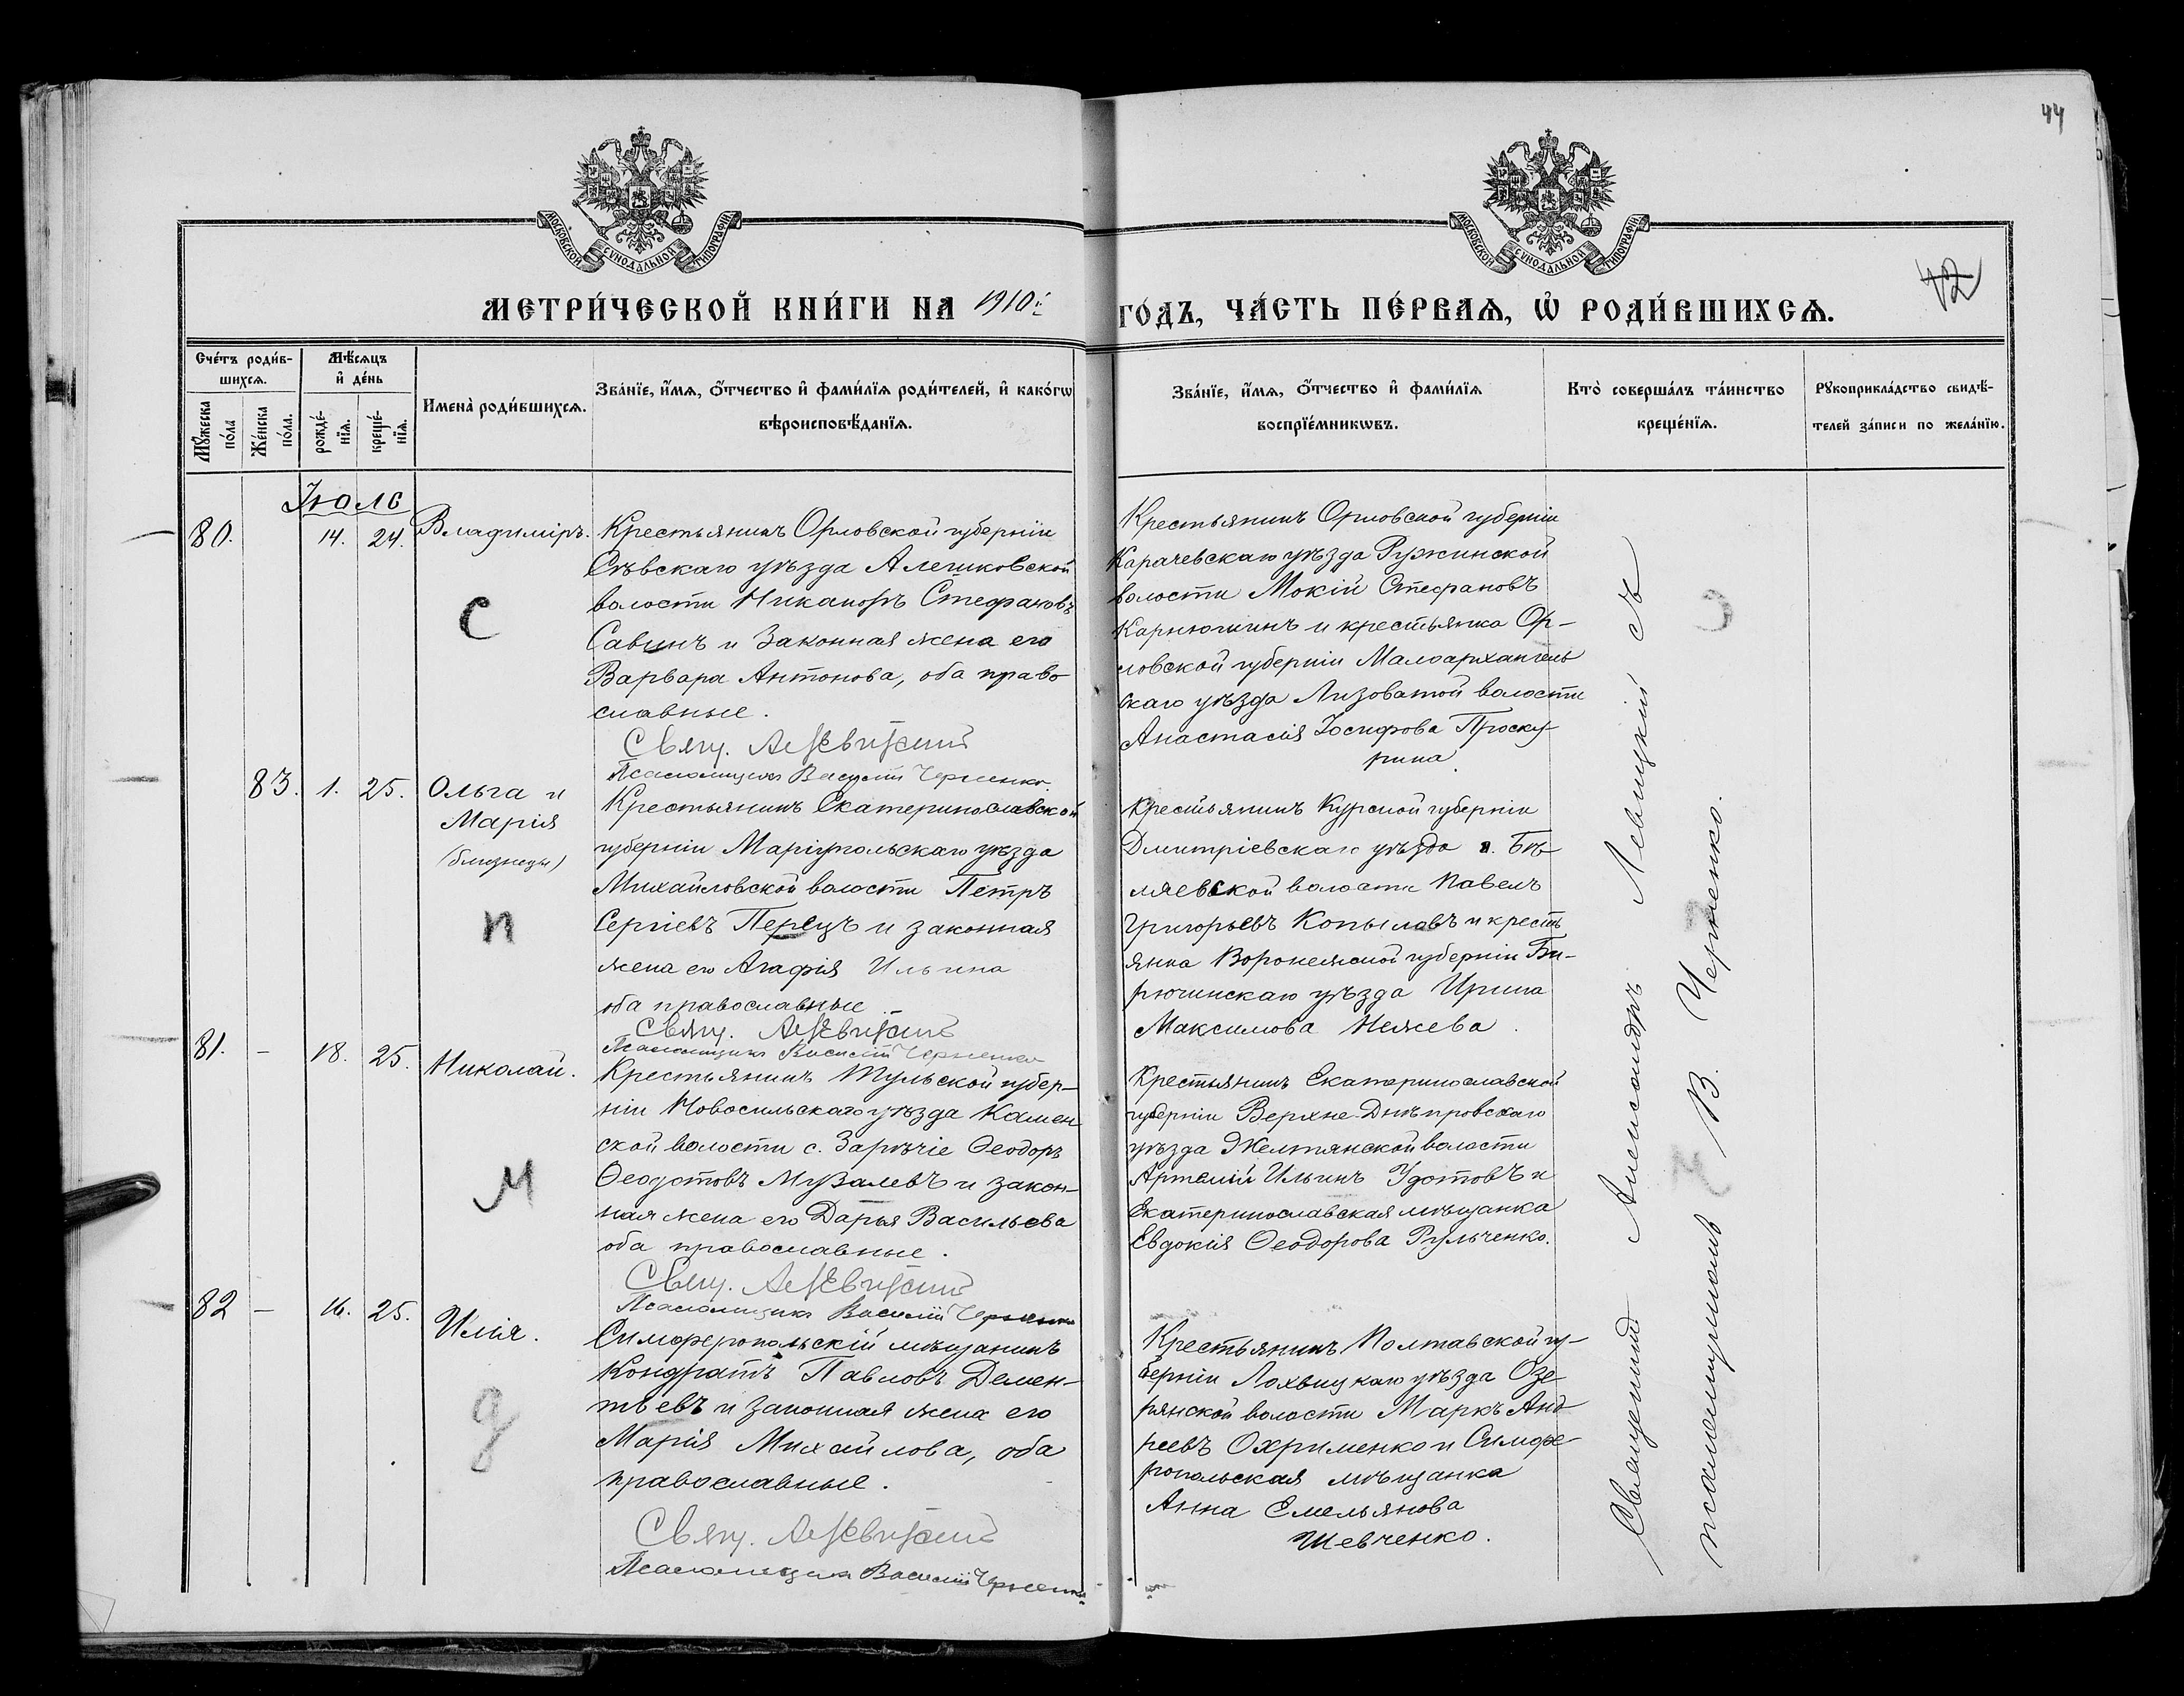 44
42
МОСКОВСКОЙ СѴНОДАЛЬНОЙ ТИПОГРАФІИ
МОСКОВСКОЙ СѴНОДАЛЬНОЙ ТИПОГРАФІИ
МЕТРИ́ЧЕСКОЙ КНИ́ГИ НА 1910й
ГО́ДЪ, ЧА́СТЬ ПЕ́РВАѦ, Ѡ҆ РОДИ́ВШИХСѦ.
Сче́тъ роди́в-
шихсѧ.
Мꙋ́жеска по́ла
Же́нска по́ла.
Мѣ́сѧцъ
и҆ де́нь
рожде́-
нїѧ.
креще́-
нїѧ.
Имена̀ роди́вшихсѧ.
Зва́нїе, и҆́мѧ, ѻ҆́тчество и҆ фами́лїѧ роди́телей, и҆ како́гѡ
вѣроисповѣ́данїѧ.
Зва́нїе, и҆́мѧ, ѻ҆́тчество и҆ фами́лїѧ
воспрїе́мникѡвъ.
Кто̀ соверша́лъ та́инство
креще́нїѧ.
Рꙋкоприкла́дство свидѣ́-
телей за́писи по жела́нїю.
Іюль
80. 14. 24. Владиміръ.
Крестьянинъ Орловской губерніи
Сѣвскаго уѣзда Алешковской
волости Никаноръ Стефановъ
Савинъ и законная жена его
Варвара Антонова, оба право
славные.
Свящ. А. Левитскій
Псаломщикъ Василій Черненко.
С
Крестьянинъ Орловской губерніи
Карачевскаго уѣзда Ружинской
волости Мокій Стефановъ
Карнюшинъ и крестьянка Ор-
ловской губерніи Малоархангель
скаго уѣзда Лизоватой волости
Анастасія Іосифова Проску-
рина.
83. 1. 25. Ольга и
Марія
(близнецы)
Крестьянинъ Екатеринославской
губерніи Маріупольскаго уѣзда
Михайловской волости Петръ
Сергіевъ Перецъ и законная
жена его Агафія Ильина
оба православные
Свящ. А. Левитскій
Псаломщикъ Василій Черненко
п
Крестьянинъ Курской губерніи
Дмитріевскаго уѣзда Бѣ-
ляевской волости Павелъ
Григорьевъ Копыловъ и кресть
янка Воронежской губерніи Би-
рючинскаго уѣзда Ирина
Максимова Нежева.
81. - 18. 25. Николай.
Крестьянинъ Тульской губер-
ніи Новосильскаго уѣзда Камен
ской волости с. Зарѣчіе Ѳеодоръ
Ѳеодотовъ Музалевъ и закон-
ная жена его Дарья Васильева
оба православные.
Свящ. А. Левитскій
Псаломщикъ Василій Черненко
М
Крестьянинъ Екатеринославской
губерніи Верхне-Днѣпровскаго
уѣзда Желтянской волости
Артемій Ильинъ Удотовъ и
Екатеринославская мѣщанка
Евдокія Ѳеодорова Рульченко.
82 - 16. 25. Илія.
Симферопольскій мѣщанинъ
Кондратъ Павловъ Демен-
тьевъ и законная жена его
Марія Михайлова, оба
православные.
Свящ. А. Левитскій
Псаломщикъ Василій Черненко
д
Крестьянинъ Полтавской гу-
берніи Лохвицкаго уѣзда Озе-
рянской волости Маркъ Анд
реевъ Охрименко и Симфе
ропольская мѣщанка
Анна Емельянова
Шевченко.
Священникъ Александръ Левицкій съ
псаломщикомъ В. Черненко.